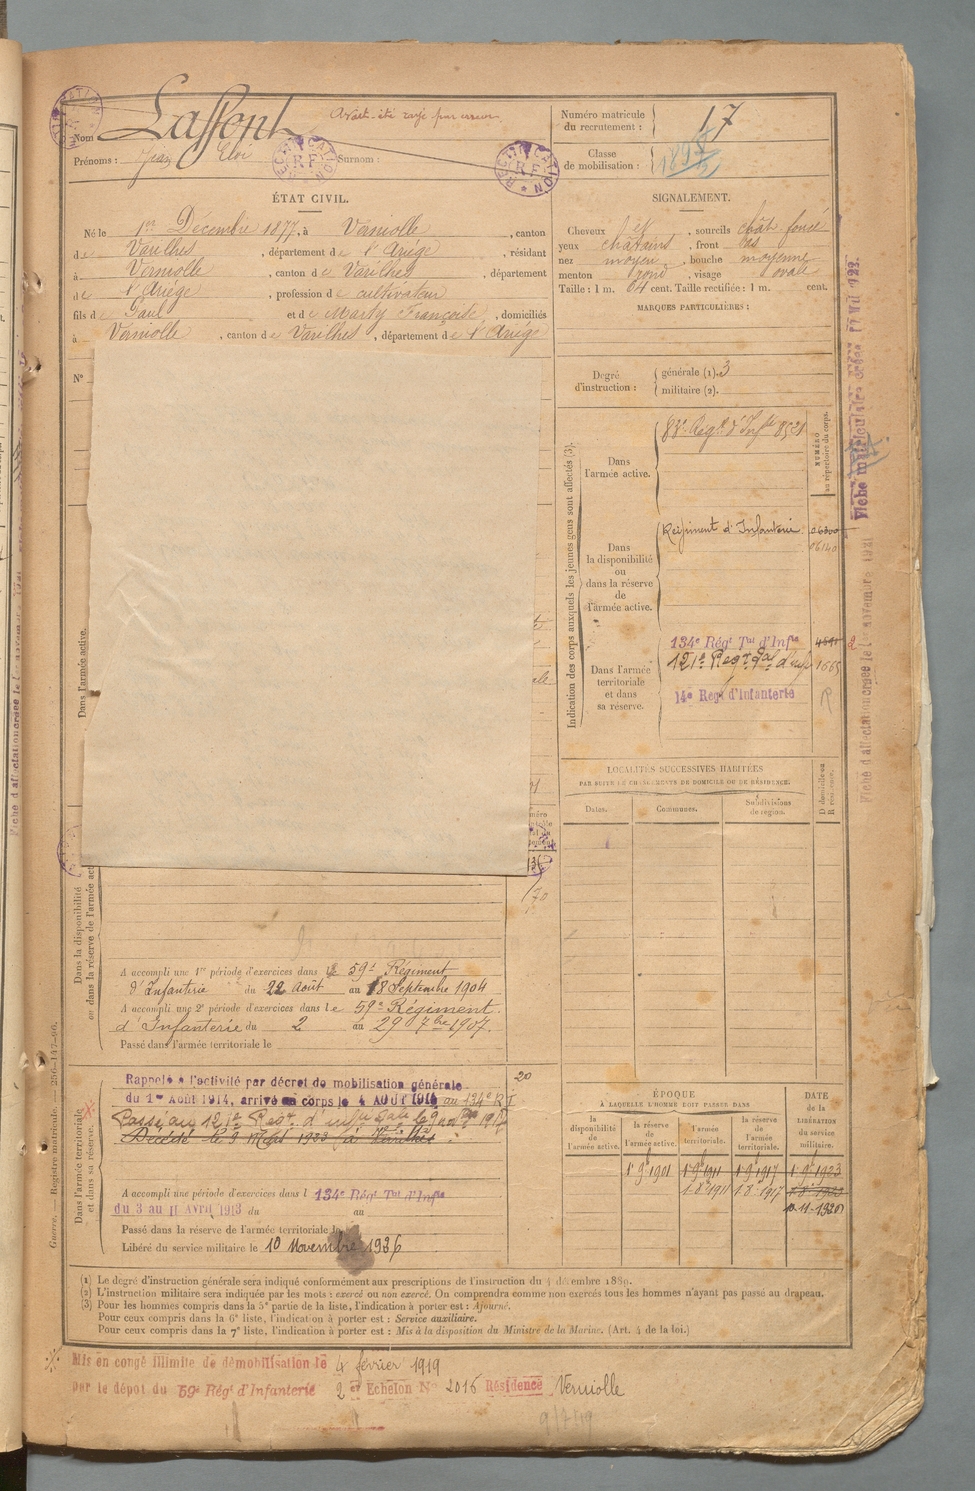 Laffont
Avait été rayé par erreur
Nom
Prénoms : Jean Eloi Surnom :
RECTIFICATION R F
RECTIFICATION R F
Numéro matricule du recrutement : 17
Classe de mobilisation : 1897
ÉTAT CIVIL.
Né le 1er Décembre 1877, à Verniolle, canton
de Varilhes, département de l'Ariège, résidant
à Verniolle, canton de Varilhes, département
de l'Ariège, profession de cultivateur
fils de Paul et de Marty Françoise, domiciliés
à Verniolle, canton de Varilhes, département de l'Ariège
N°
SIGNALEMENT.
Cheveux et, sourcils chât foncé
yeux châtains, front bas
nez moyen, bouche moyenne
menton rond, visage ovale
Taille : 1 m. 64 cent. Taille rectifiée : 1 m. cent.
MARQUES PARTICULIÈRES :
Degré d'instruction : générale (1). 3
militaire (2).
Indication des corps auxquels les jeunes gens sont affectés (3).
NUMÉRO au répertoire du corps.
Dans l'armée active.
Régt d'Infie 8521
Dans la disponibilité ou dans la réserve de l'armée active.
Régiment d'Infanterie
06140
Dans l'armée territoriale et dans sa réserve.
134e Régt Tal d'Infie 4591
121e Regt Tal d'inf 1665
14e Regt d'Infanterie
R
LOCALITÉS SUCCESSIVES HABITÉES
PAR SUITE DE CHANGEMENTS DE DOMICILE OU DE RÉSIDENCE.
Dates. Communes. Subdivisions de région. D domicile ou R résidence.
Dans l'armée active.
Dans la disponibilité ou dans la réserve de l'armée active.
A accompli une 1re période d'exercices dans le 59e Régiment
d'Infanterie du 22 Août au 18 Septembre 1904
A accompli une 2e période d'exercices dans le 59e Régiment
d'Infanterie du 2 au 29 7bre 1907.
Passé dans l'armée territoriale le
Dans l'armée territoriale et dans sa réserve.
Rappelé à l'activité par décret de mobilisation générale
du 1er Août 1914, arrivé au corps le 4 AOUT 1914 au 134e R I
20
Passé au 121e Regt d'infie Tale le 9 nov
Décédé le 9 Mars 1933 à Varilhes
A accompli une période d'exercices dans l 134e Régt Tal d'Infie
du 3 au 11 Avril 1913 du au
Passé dans la réserve de l'armée territoriale le
Libéré du service militaire le 10 Novembre 1926
ÉPOQUE
À LAQUELLE L'HOMME DOIT PASSER DANS
la disponibilité de l'armée active.
la réserve de l'armée active.
l'armée territoriale.
la réserve de l'armée territoriale.
DATE de la LIBÉRATION du service militaire.
1 9 1901 1 9 1911 1 9 1917 1 9 1923
1 8 1911 1 8 1917
Guerre. — Registre matricule. — 256-147-96.
(1) Le degré d'instruction générale sera indiqué conformément aux prescriptions de l'instruction du 4 décembre 1889.
(2) L'instruction militaire sera indiquée par les mots : exercé ou non exercé. On comprendra comme non exercés tous les hommes n'ayant pas passé au drapeau.
(3) Pour les hommes compris dans la 5e partie de la liste, l'indication à porter est : Ajourné.
Pour ceux compris dans la 6e liste, l'indication à porter est : Service auxiliaire.
Pour ceux compris dans la 7e liste, l'indication à porter est : Mis à la disposition du Ministre de la Marine. (Art. 4 de la loi.)
Mis en congé illimité de démobilisation le 4 février 1919
par le dépôt du 59e Régt d'Infanterie 2e Echelon N° 2015 Résidence Verniolle
Fiche d'affectation créée le 1 novembre 1921
Fiche matricule